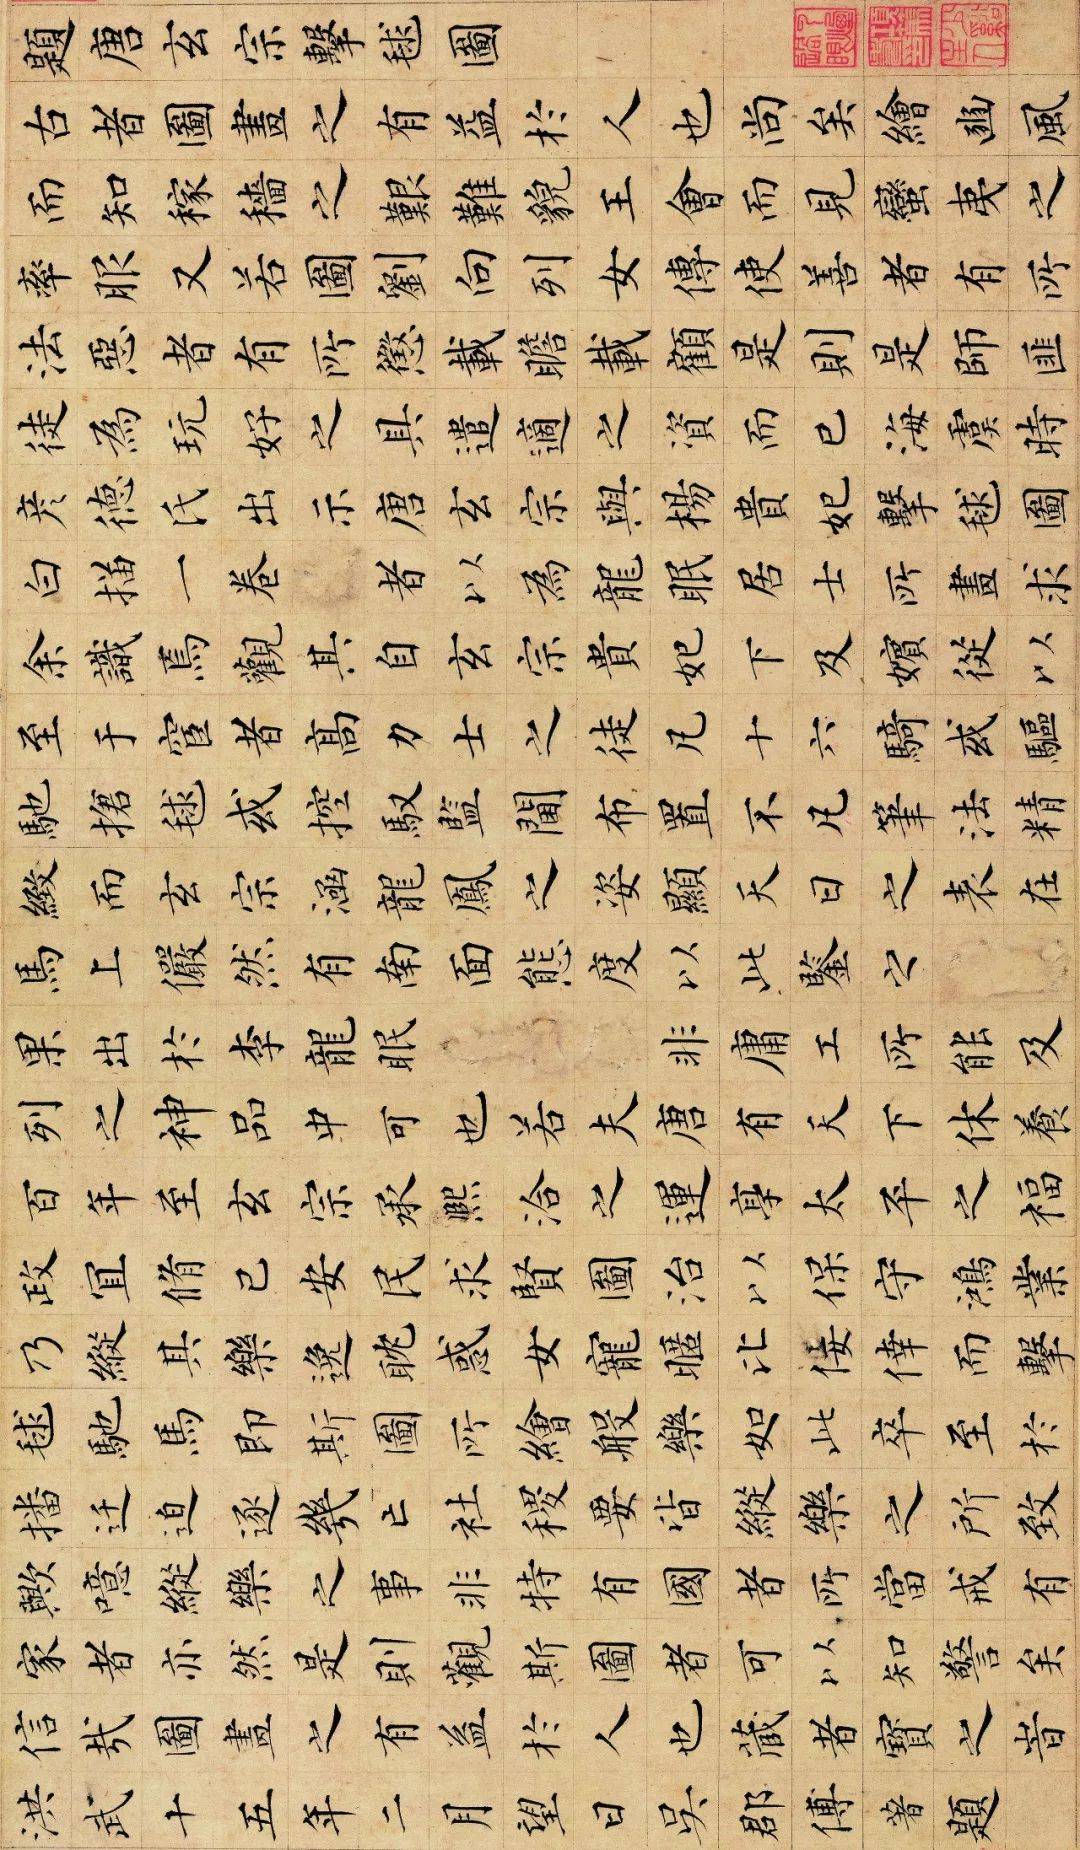 題唐玄宗擊毬圖
古者圖畫之有益於人也尚矣繪豳風
而知稼穡之艱難貌王會而見蠻夷之
率服又若圖劉向列女傳使善者有所
法惡者有所懲載瞻載顧是則是師匪
徒為玩好之具遣適之資而已海虞時
彦德氏出示唐玄宗與楊貴妃擊毬圖
白描一卷 者以為龍眠居士所畫求
余識焉觀其自玄宗貴妃下及嬪從以
至于宦者高力士之徒凡十六騎或驅
馳搶毬或控馭監閫布置不凡筆法精
緻而玄宗涵龍鳳之姿顯天日之表在
馬上儼然有南面態度以此鑒之
果出於李龍眠 非庸工所能及
列之神品中可也若夫唐有天下休養
百年至玄宗承熙洽之運享太平之福
政宜脩己安民求賢圖治以保守鴻業
乃縱其樂逸耽惑女寵暱比佞倖而擊
毬馳馬即斯圖所繪般樂如此卒至於
播迁迫逐幾亡社稷要皆縱樂之所致
歟噫縱樂之事非特有國者所當戒有
家者亦然是則觀斯圖者可以知警矣
信哉圖畫之有益於人也藏者寶之旹
洪武十五年二月望日吳郡傅著題